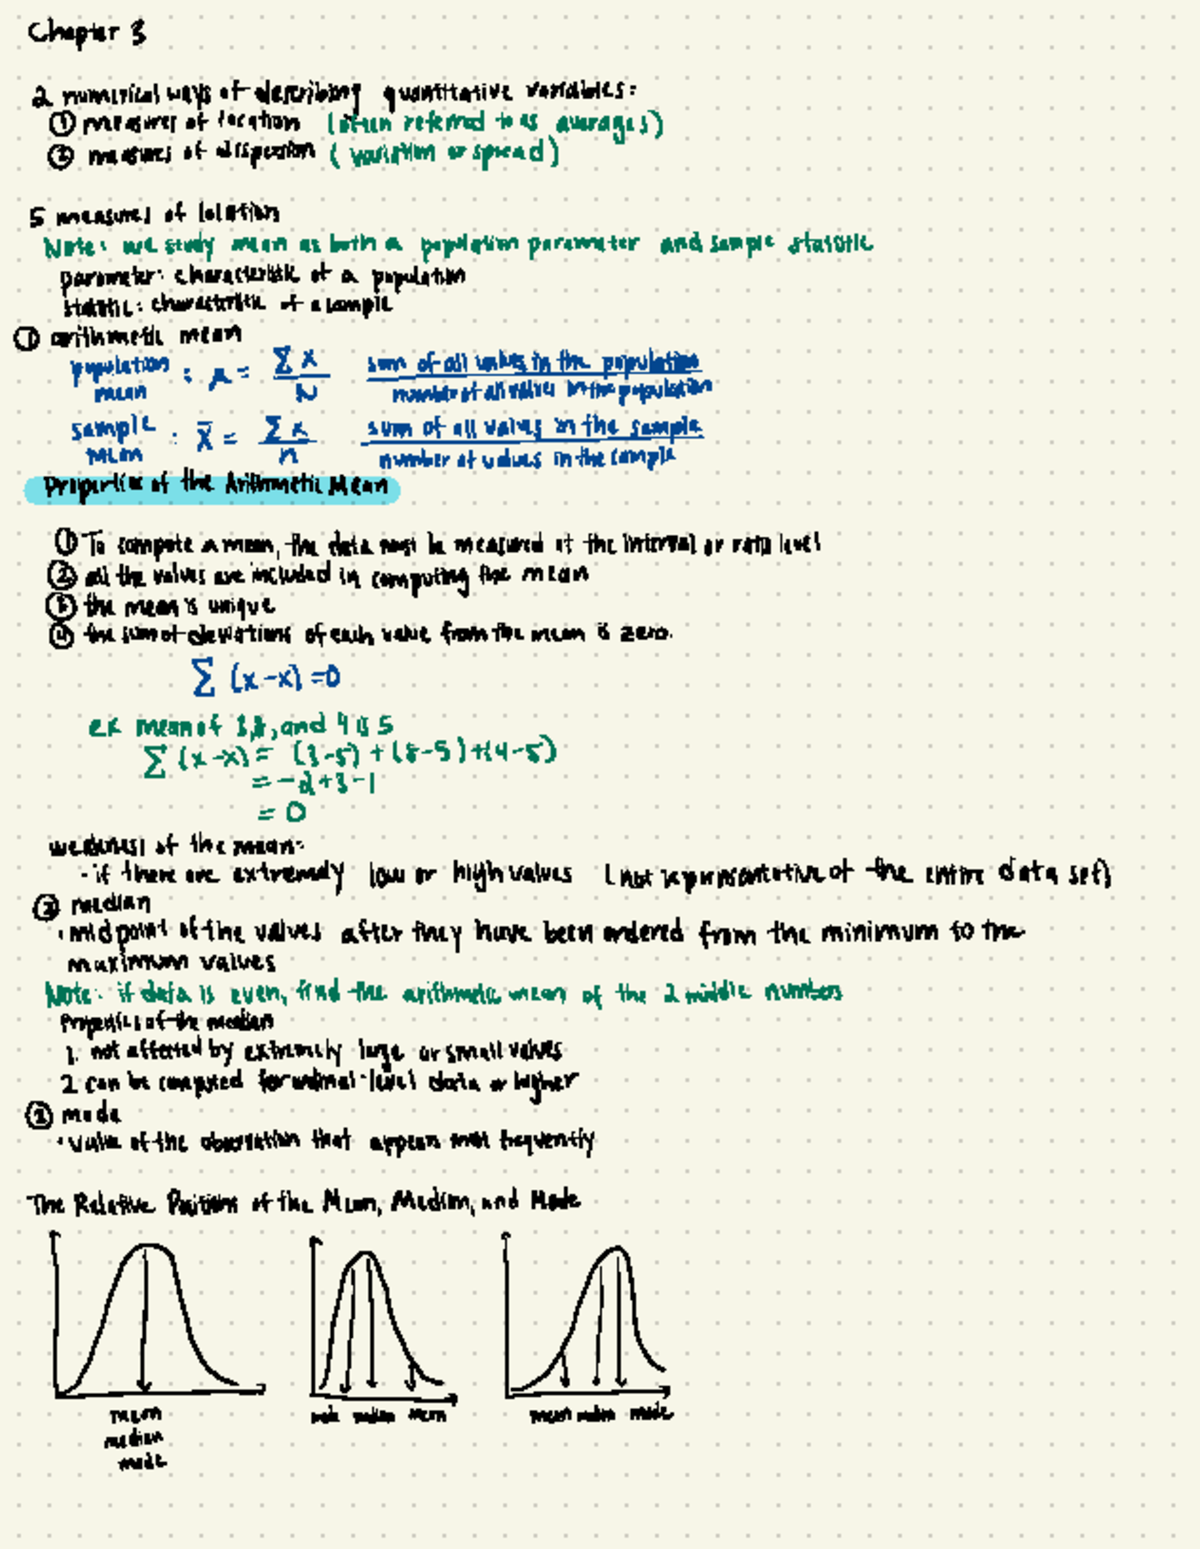 Chapter 3
2 numerical ways of describing quantitative variables:
① measures of location (often referred to as averages)
② measures of dispersion (variation or spread)
5 measures of location
Note: we study mean as both a population parameter and sample statistic
parameter: characteristic of a population
statistic: characteristic of a sample
① arithmetic mean
population mean : μ = Σx / N sum of all values in the population / number of all values in the population
sample mean : x̄ = Σx / n sum of all values in the sample / number of values in the sample
Properties of the Arithmetic Mean
① To compute a mean, the data must be measured at the interval or ratio level
② all the values are included in computing the mean
③ the mean is unique
④ the sum of deviations of each value from the mean is zero.
Σ (x-x) = 0
ex mean of 3,8, and 4 is 5
Σ (x-x) = (3-5) + (8-5) + (4-5)
= -2+3-1
= 0
weakness of the mean:
- if there are extremely low or high values (not representative of the entire data set)
② median
· midpoint of the values after they have been ordered from the minimum to the
maximum values
Note: if data is even, find the arithmetic mean of the 2 middle numbers
Properties of the median
1. not affected by extremely large or small values
2 can be computed for ordinal-level data or higher
③ mode
· value of the observation that appears most frequently
The Relative Positions of the Mean, Median, and Mode
mean
median
mode
mode median mean
mean median mode